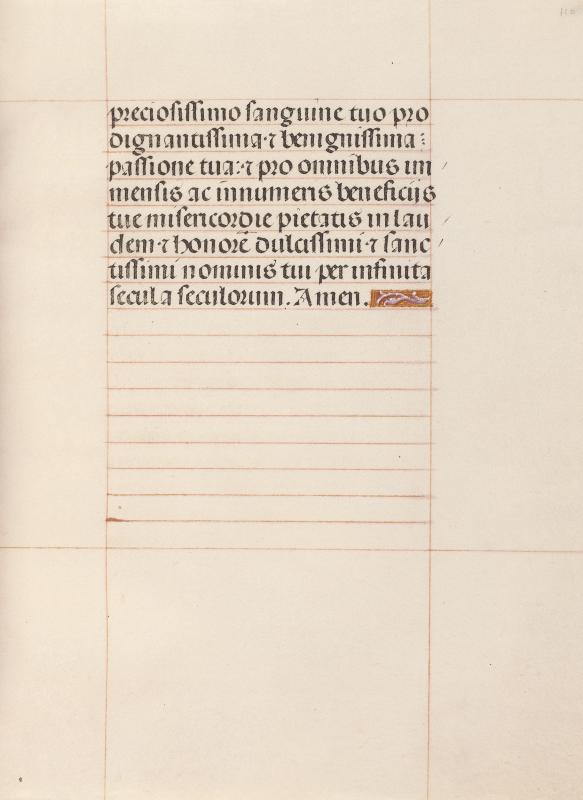 preciosissimo sanguine tuo pro
dignantissima ⁊ benignissima:
passione tua: ⁊ pro omnibus im
mensis ac innumeris beneficijs
tue misericordie pietatis in lau
dem ⁊ honorē dulcissimi ⁊ sanc
tissimi nominis tui per infinita
secula seculorum. Amen.